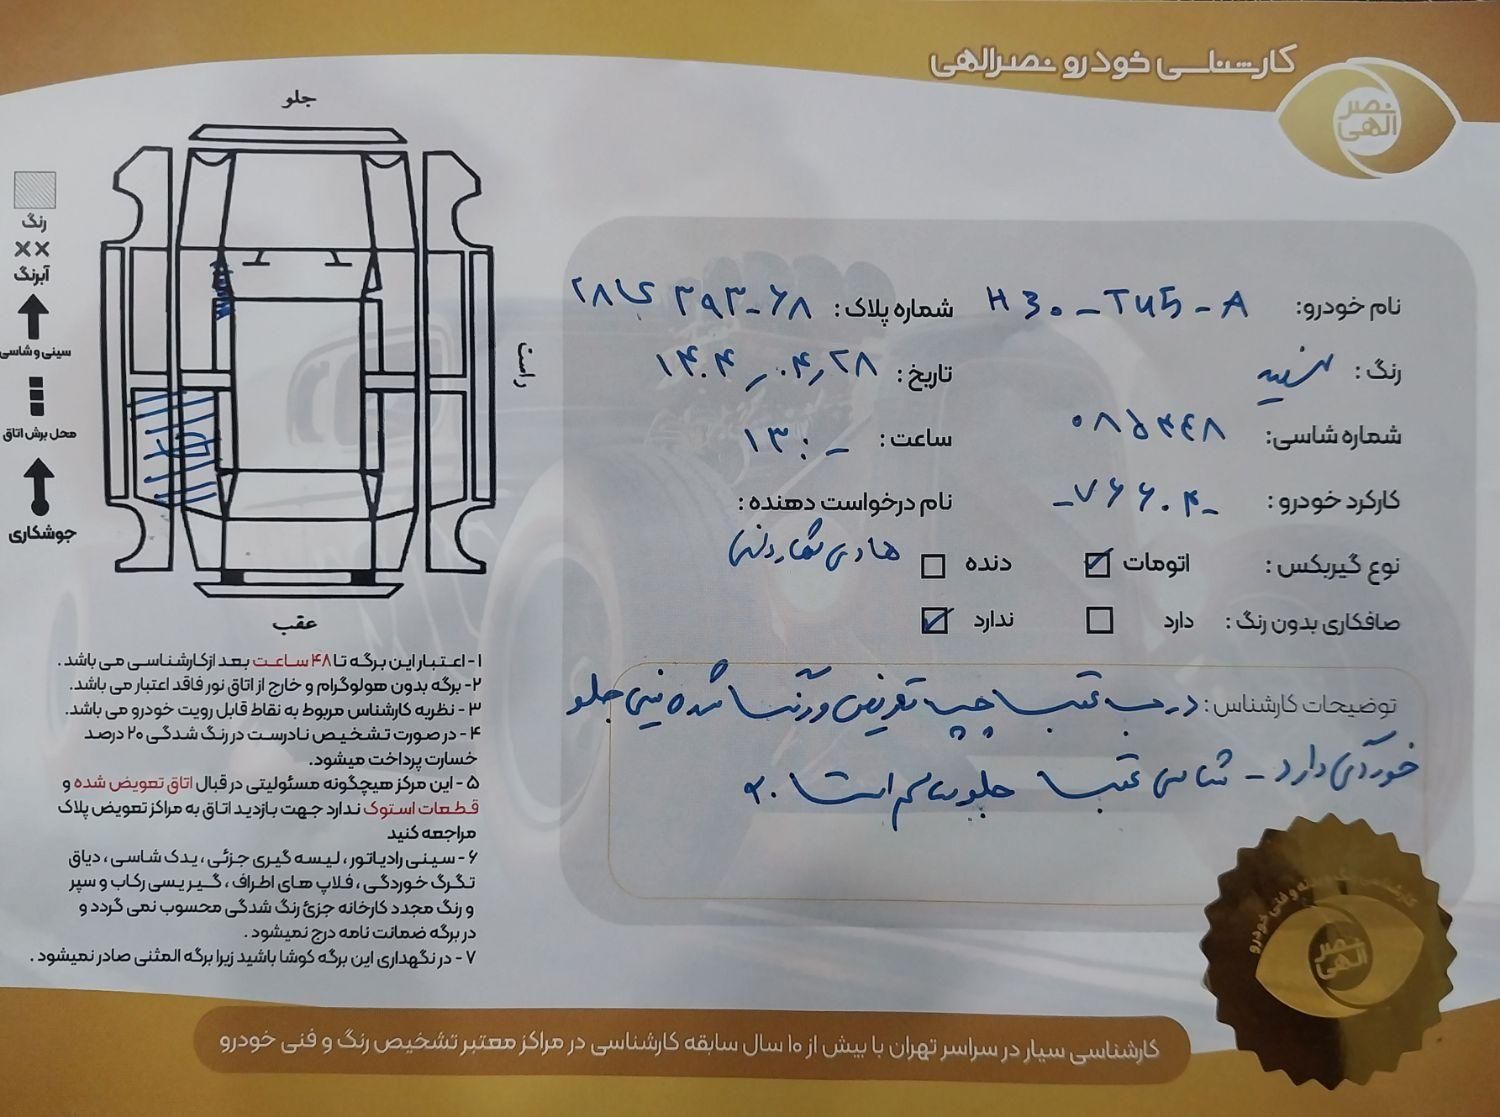 کارشناسی خودرو نصرالهی
نصر
الهی
نام خودرو: H30-TU5-A
شماره پلاک: ۶۸-۳۹۳ ۲۸
رنگ: سفید
تاریخ: ۱۴۰۴٫۰۴٫۲۸
شماره شاسی: ۰۸۵۳۴۴۸
ساعت: ۱۳:۰۰
کارکرد خودرو: -۷۶۶۰۴-
نام درخواست دهنده:
هادی
نوع گیربکس: اتومات دنده
صافکاری بدون رنگ: دارد ندارد
توضیحات کارشناس: درب عقب چپ تعویض و رنگ شده سینی جلو
خوردگی دارد - شاسی عقب جلو سالم است.
جلو
راست
عقب
رنگ
××
آبرنگ
سینی و شاسی
محل برش اتاق
جوشکاری
۱- اعتبار این برگه تا ۴۸ ساعت بعد از کارشناسی می باشد.
۲- برگه بدون هولوگرام و خارج از اتاق نور فاقد اعتبار می باشد.
۳- نظریه کارشناس مربوط به نقاط قابل رویت خودرو می باشد.
۴- در صورت تشخیص نادرست در رنگ شدگی ۲۰ درصد
خسارت پرداخت میشود.
۵- این مرکز هیچگونه مسئولیتی در قبال اتاق تعویض شده و
قطعات استوک ندارد جهت بازدید اتاق به مراکز تعویض پلاک
مراجعه کنید
۶- سینی رادیاتور، لیسه گیری جزئی، یدک شاسی، دیاق
تگرگ خوردگی، فلاپ های اطراف، گیریسی رکاب و سپر
و رنگ مجدد کارخانه جزئ رنگ شدگی محسوب نمی گردد و
در برگه ضمانت نامه درج نمیشود.
۷- در نگهداری این برگه کوشا باشید زیرا برگه المثنی صادر نمیشود.
نصر
الهی
کارشناسی سیار در سراسر تهران با بیش از ۱۰ سال سابقه کارشناسی در مراکز معتبر تشخیص رنگ و فنی خودرو